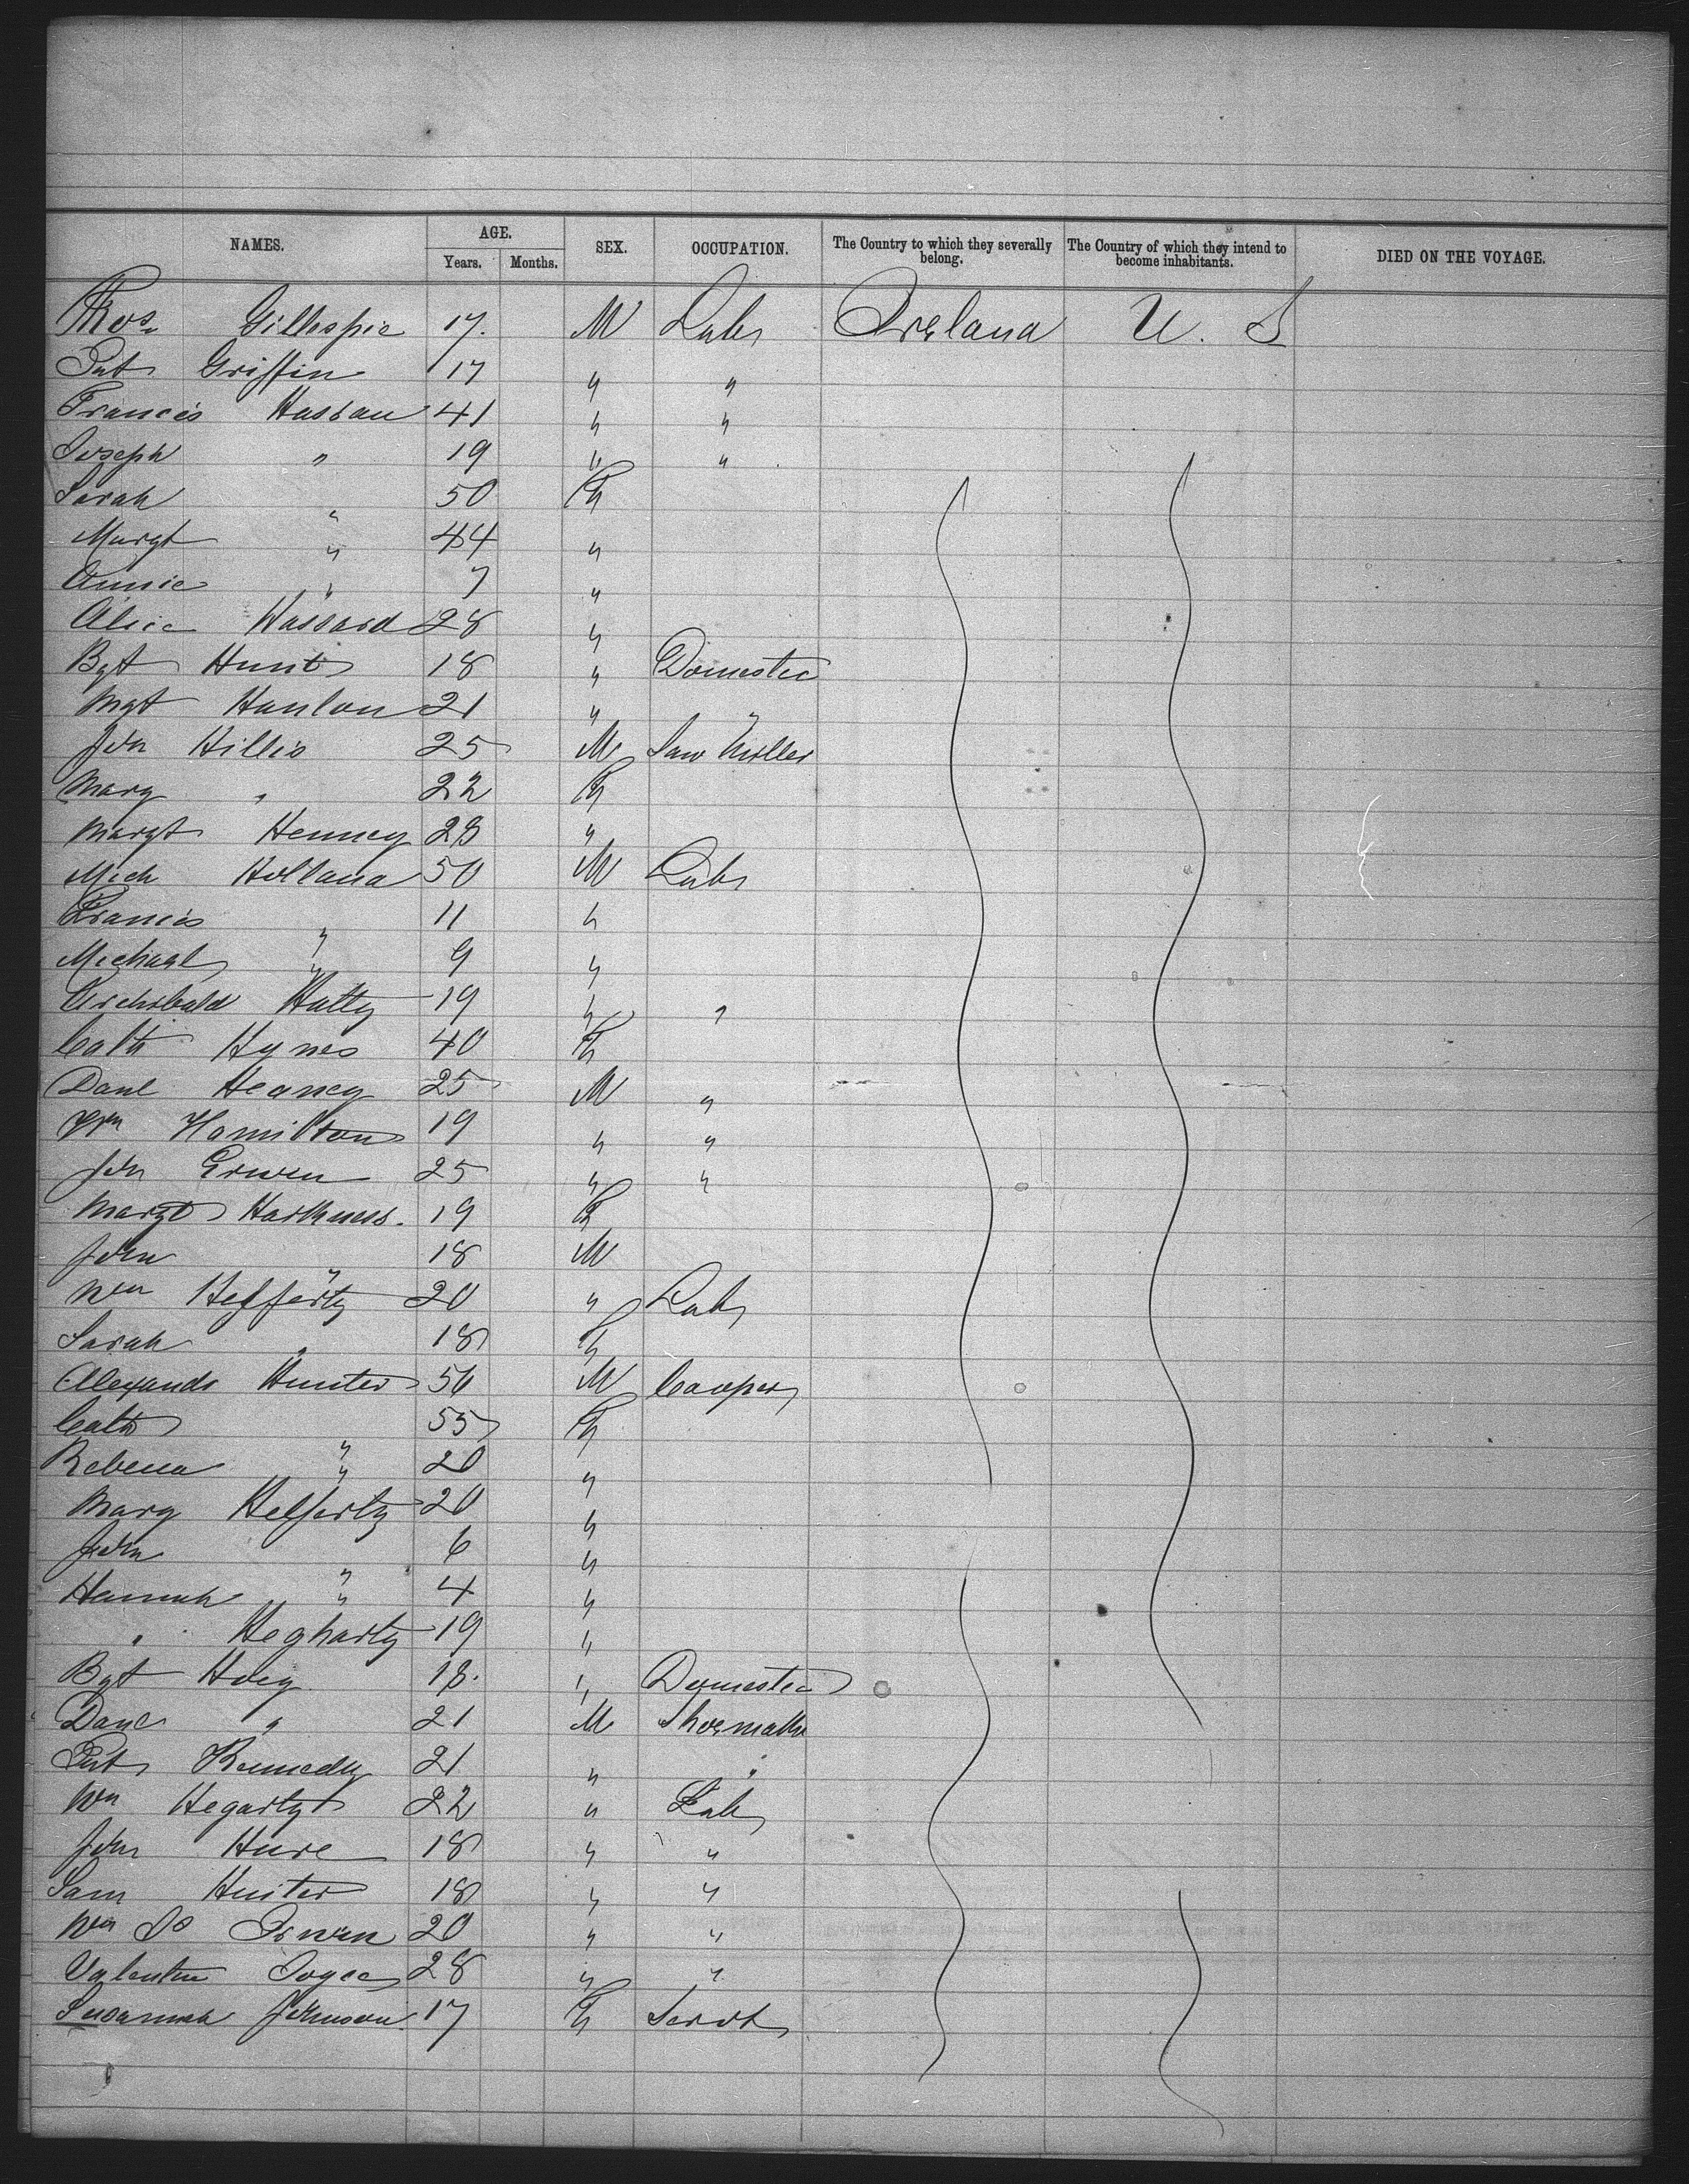 NAMES. AGE. SEX. OCCUPATION. The Country to which they severally belong. The Country of which they intend to become inhabitants. DIED ON THE VOYAGE.
Years. Months.
Thos. Gillespie 17. M Labr Ireland U. S
Pat Griffin 17 " "
Francis Hassan 41 " "
Joseph " 19 " "
Sarah " 50 F
Margt " 44 "
Annie " 7 "
Alice Hassard 28 "
Bgt Hunt 18 " Domestic
Mgt Hanlon 21 " "
Jhn Hillis 25 M Saw Miller
Mary " 22 F
Margt Henney 28 "
Mich Holland 50 M Labr
Francis " 11 "
Michael " 9 "
Archibald Hutty 19 " "
Cath Hynes 40 F
Danl Heaney 25 M "
Wm Hamilton 19 " "
Jhn Erwin 25 " "
Margt Harkness. 19 F
John " 18 M
Wm Hefferty 20 " Labr
Sarah " 18 F
Alexandr Hunter 50 M Cooper
Cath " 55 F
Rebecca " 20 "
Mary Helferty 20 "
John " 6 "
Hannah " 4 "
" Hegharty 19 "
Bgt Hoey 18. " Domestic
Danl " 21 M Shoemakr
Pat Kennedy 21 " "
Wm Hegarty 22 " Labr
John Hure 18 " "
Sam Hunter 18 " "
Wm Jo Irwin 20 " "
Valentine Joyce 28 " "
Susannah Johnson. 17 F Servt